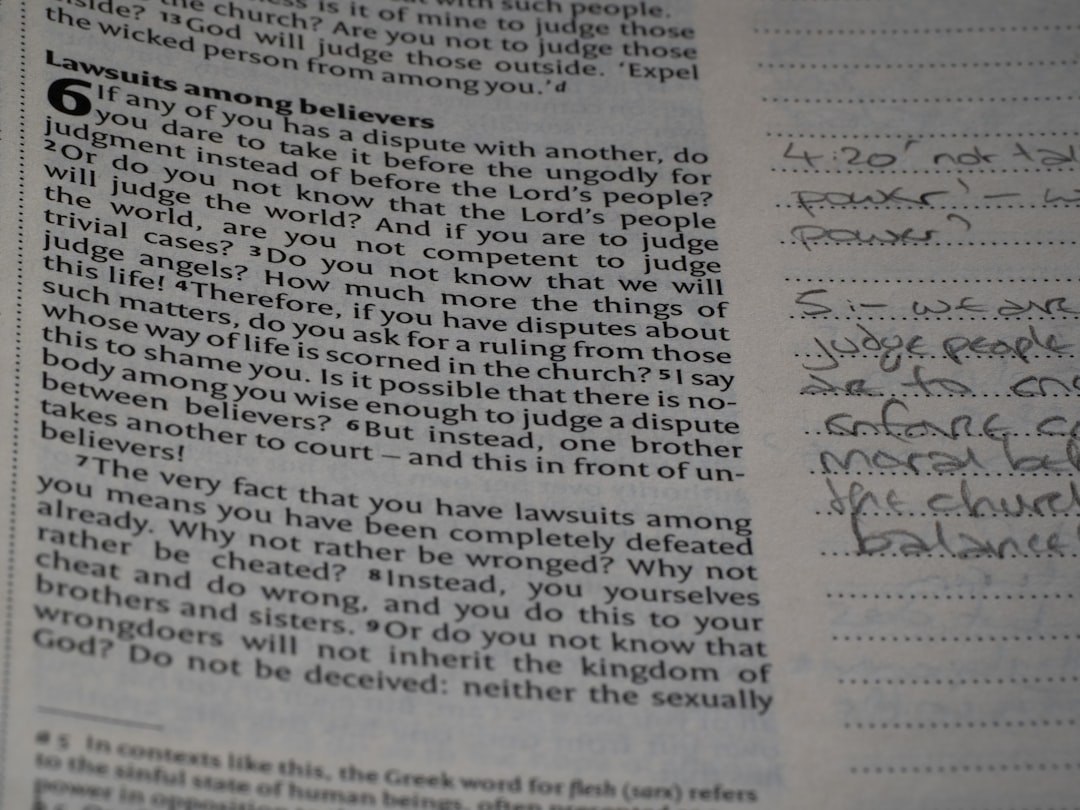 with such people.
is it of mine to judge those
the church? Are you not to judge those
13 God will judge those outside. 'Expel
the wicked person from among you.' d
Lawsuits among believers
6 If any of you has a dispute with another, do
you dare to take it before the ungodly for
judgment instead of before the Lord's people?
2 Or do you not know that the Lord's people
will judge the world? And if you are to judge
the world, are you not competent to judge
trivial cases? 3 Do you not know that we will
judge angels? How much more the things of
this life! 4 Therefore, if you have disputes about
such matters, do you ask for a ruling from those
whose way of life is scorned in the church? 5 I say
this to shame you. Is it possible that there is no-
body among you wise enough to judge a dispute
between believers? 6 But instead, one brother
takes another to court – and this in front of un-
believers!
7 The very fact that you have lawsuits among
you means you have been completely defeated
already. Why not rather be wronged? Why not
rather be cheated? 8 Instead, you yourselves
cheat and do wrong, and you do this to your
brothers and sisters. 9 Or do you not know that
wrongdoers will not inherit the kingdom of
God? Do not be deceived: neither the sexually
a 5 In contexts like this, the Greek word for flesh (sarx) refers
to the sinful state of human beings, often presented
power in opposition
4:20 ' not
power' –
power?
5 :- we are
judge people
to
enforce
moral
the church
balance